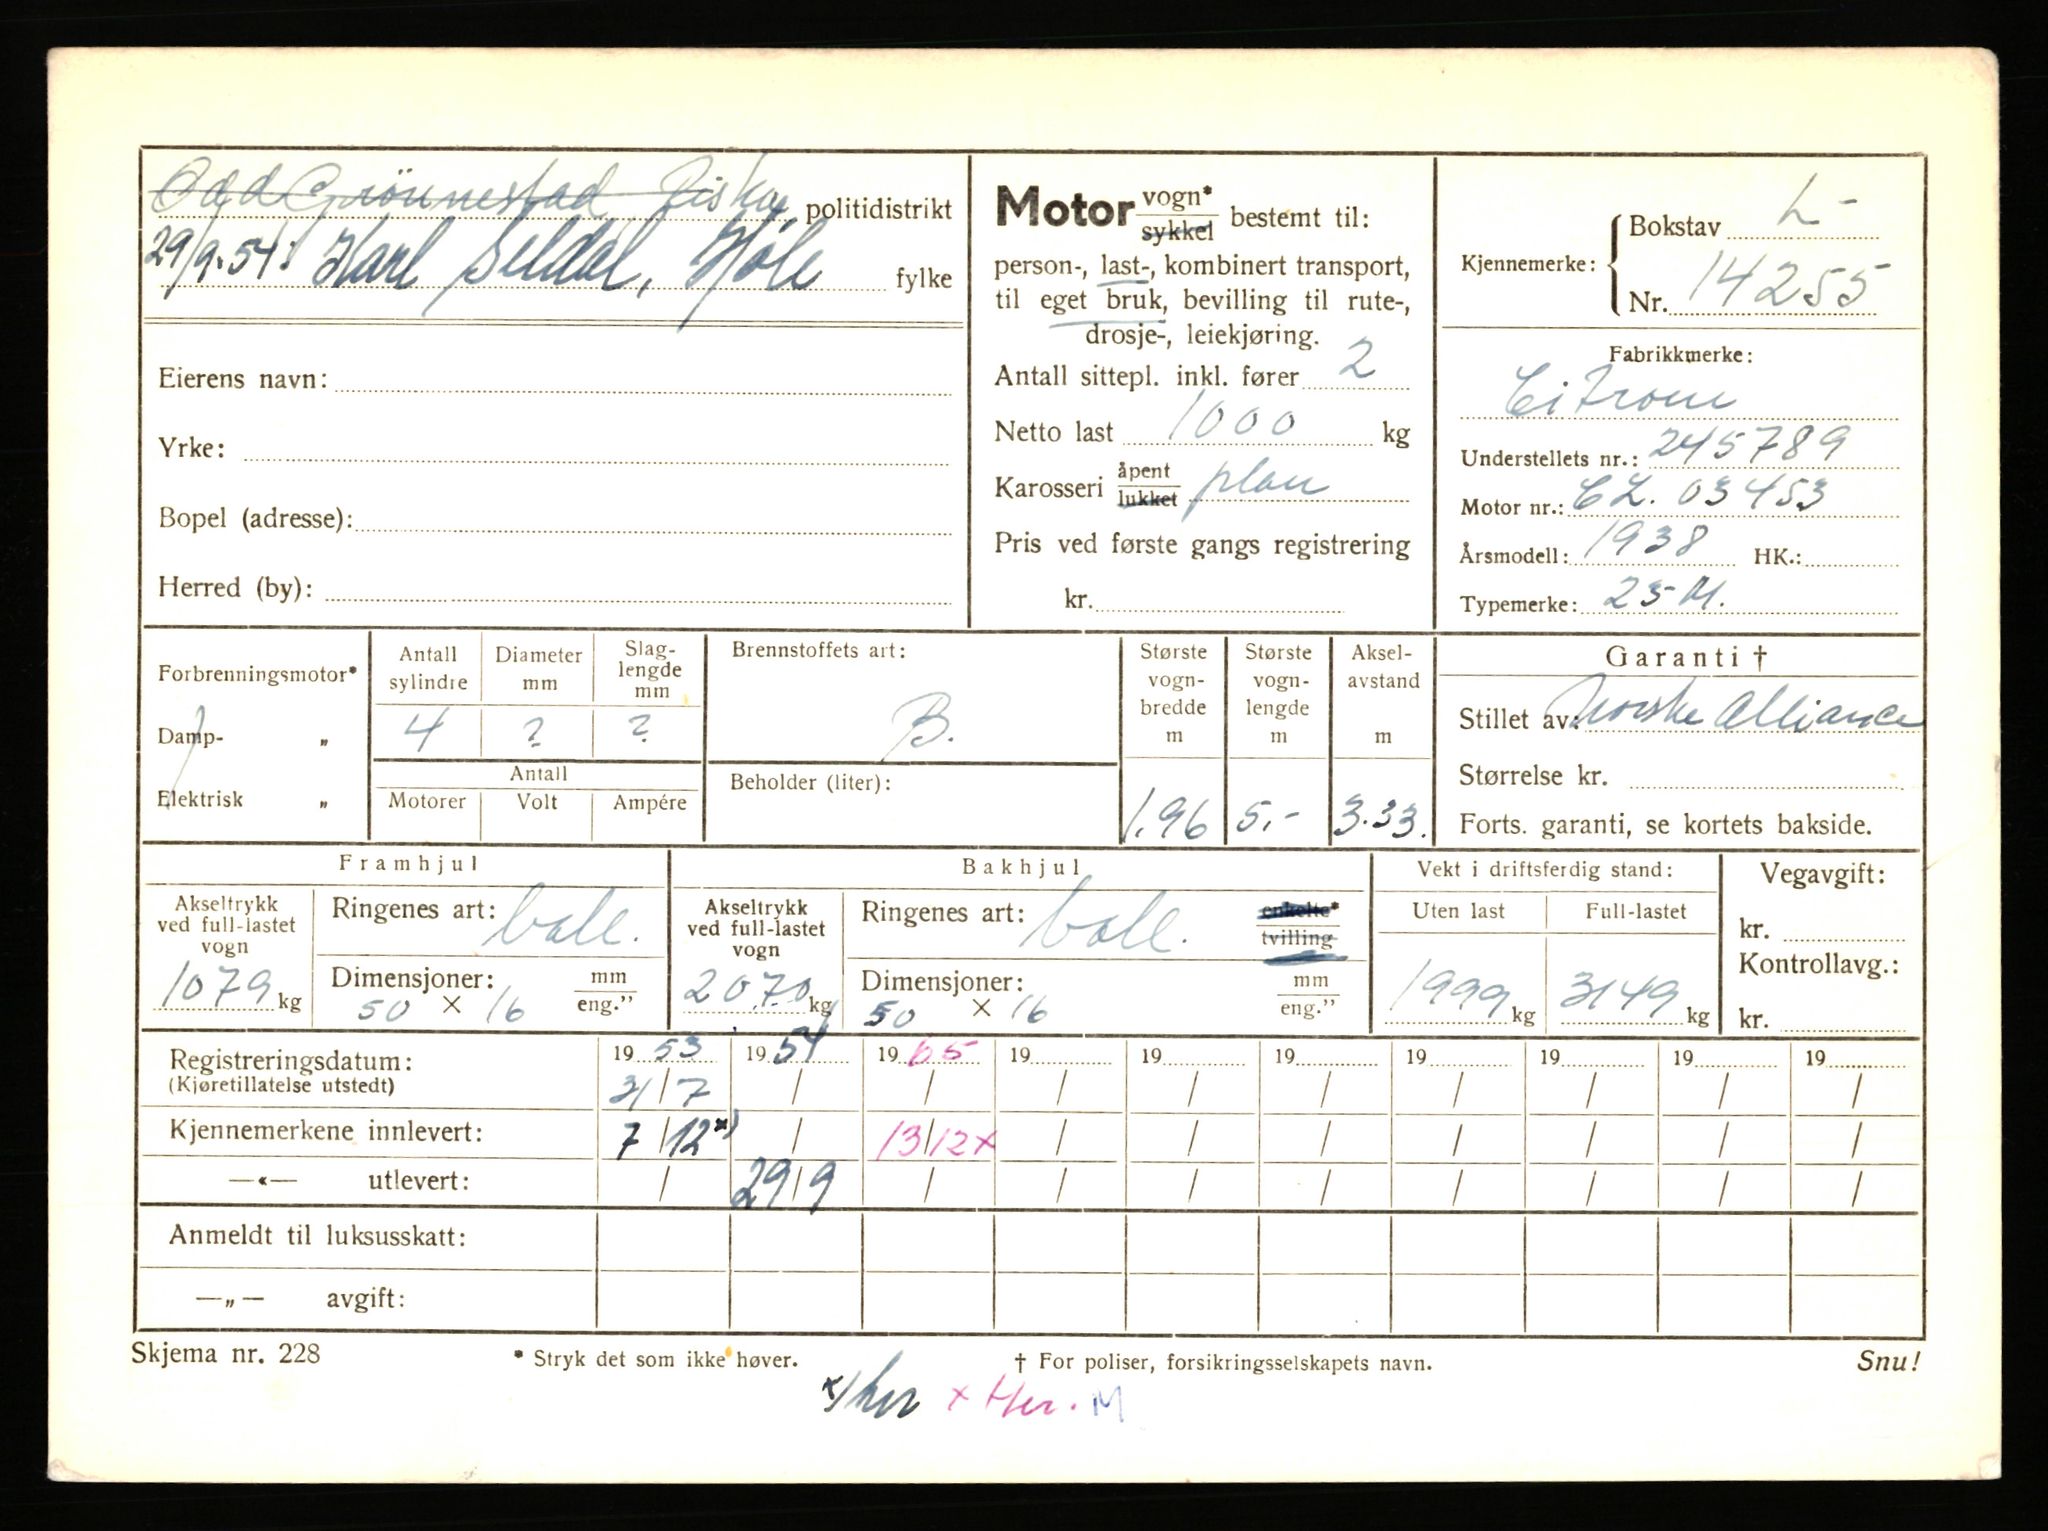 Odd Grönnestad, Riska politidistrikt
29/9-54: Karl Seldal, Høle fylke
Eierens navn:
Yrke:
Bopel (adresse):
Herred (by):
Motor vogn* sykkel bestemt til:
person-, last-, kombinert transport,
til eget bruk, bevilling til rute-,
drosje-, leiekjøring.
Antall sittepl. inkl. fører 2
Netto last 1000 kg
Karosseri åpent lukket plan
Pris ved første gangs registrering
kr.
Kjennemerke: Bokstav L-
Nr. 14255
Fabrikkmerke:
Citroen
Understellets nr.: 245789
Motor nr.: CL. 03453
Årsmodell: 1938 HK.:
Typemerke: 23-M.
Forbrenningsmotor*
Damp- „
Elektrisk „
Antall sylindre Diameter mm Slag-lengde mm
4 ? ?
Antall
Motorer Volt Ampére
Brennstoffets art:
B.
Beholder (liter):
Største vogn-bredde m Største vogn-lengde m Aksel-avstand m
1,96 5,- 3.33.
Garanti †
Stillet av: Norske Alliance
Størrelse kr.
Forts. garanti, se kortets bakside.
Framhjul
Akseltrykk ved full-lastet vogn
1079 kg
Ringenes art:
Dimensjoner: mm eng.”
50 × 16
Bakhjul
Akseltrykk ved full-lastet vogn
2070 kg
Ringenes art: enkelte* tvilling
Dimensjoner: mm eng.”
50 × 16
Vekt i driftsferdig stand:
Uten last Full-lastet
1999 kg 3149 kg
Vegavgift:
kr.
Kontrollavg.:
kr.
Registreringsdatum: 19 53 19 54 19 65 19 19 19 19 19 19 19
(Kjøretillatelse utstedt) 31/7 / / / / / / / / /
Kjennemerkene innlevert: 7/12 x) / 13/12 x / / / / / / /
—«— utlevert: / 29/9 / / / / / / / /
Anmeldt til luksusskatt:
—„— avgift:
Skjema nr. 228 * Stryk det som ikke høver. † For poliser, forsikringsselskapets navn. Snu!
x) her x Her. M